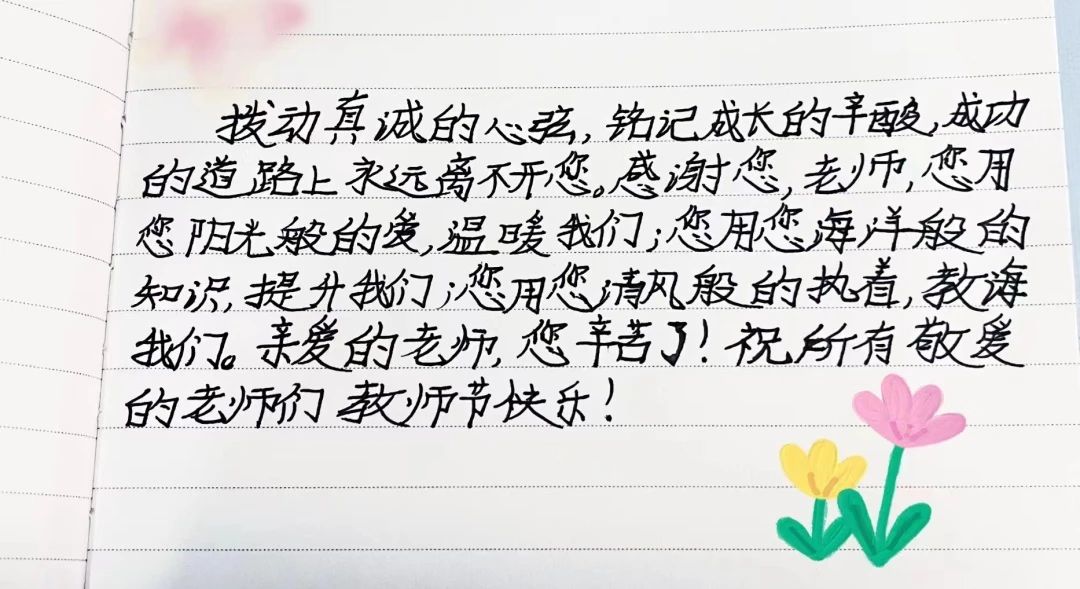 拨动真诚的心弦,铭记成长的辛酸,成功
的道路上永远离不开您。感谢您,老师,您用
您阳光般的爱,温暖我们;您用您海洋般的
知识,提升我们;您用您清风般的执着,教诲
我们。亲爱的老师,您辛苦了!祝所有敬爱
的老师们 教师节快乐!